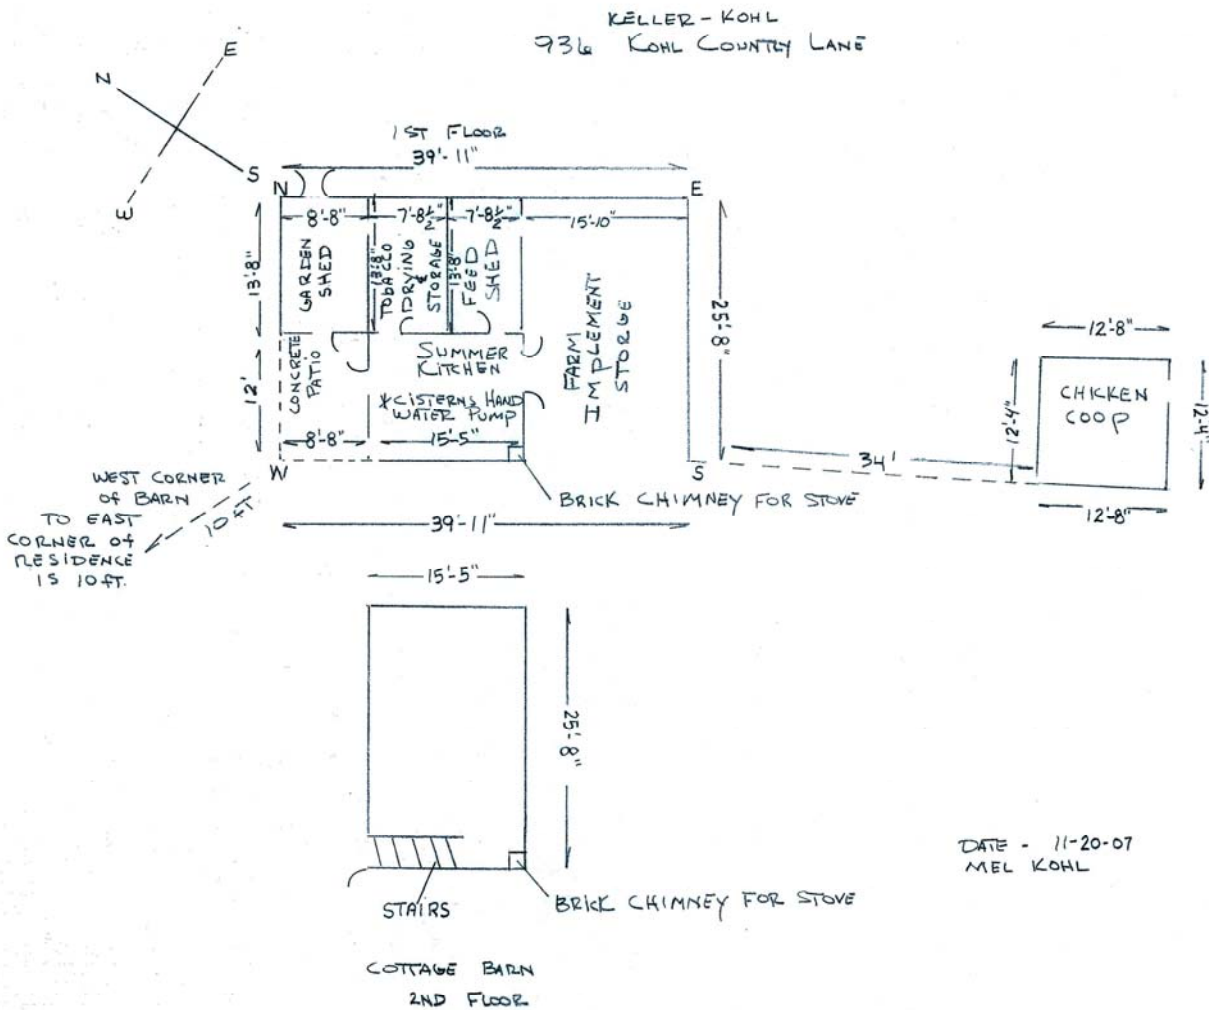 KELLER-KOHL
936 KOHL COUNTRY LANE
N
E
S
W
1ST FLOOR
39'-11"
N
E
8'-8"
7'-8½"
7'-8½"
15'-10"
13'-8"
GARDEN
SHED
13'-8"
TOBACCO
DRYING
&
STORAGE
13'-8"
FEED
SHED
FARM
IMPLEMENT
STORGE
25'-8"
12'
CONCRETE
PATIO
SUMMER
KITCHEN
*CISTERNS HAND
WATER PUMP
8'-8"
15'-5"
W
S
39'-11"
BRICK CHIMNEY FOR STOVE
34'
12'-8"
12'-4"
CHICKEN
COOP
12'-4"
12'-8"
WEST CORNER
OF BARN
TO EAST
CORNER OF
RESIDENCE
IS 10 FT.
10 FT.
15'-5"
25'-8"
STAIRS
BRICK CHIMNEY FOR STOVE
COTTAGE BARN
2ND FLOOR
DATE - 11-20-07
MEL KOHL